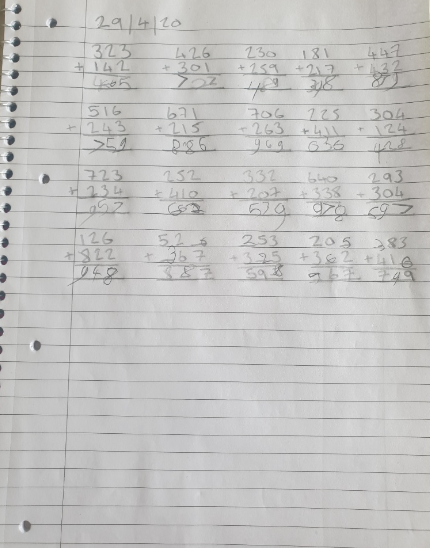 29/4/20
323 426 230 181 447
+142 +301 +259 +217 +432
465 727 489 398
516 671 706 225 304
+243 +215 +263 +411 +124
759 886 969 636 428
723 252 332 640 293
+234 +410 +207 +338 +304
957 539 978 597
126 253 205 383
+822 + 367 +325 +362 +416
948 887 598 567 799